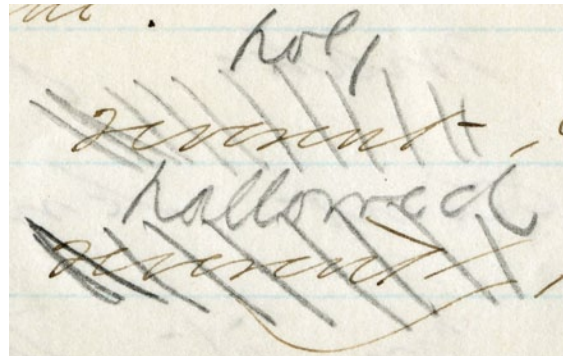 holy
reverent,
hallowed
reverent,